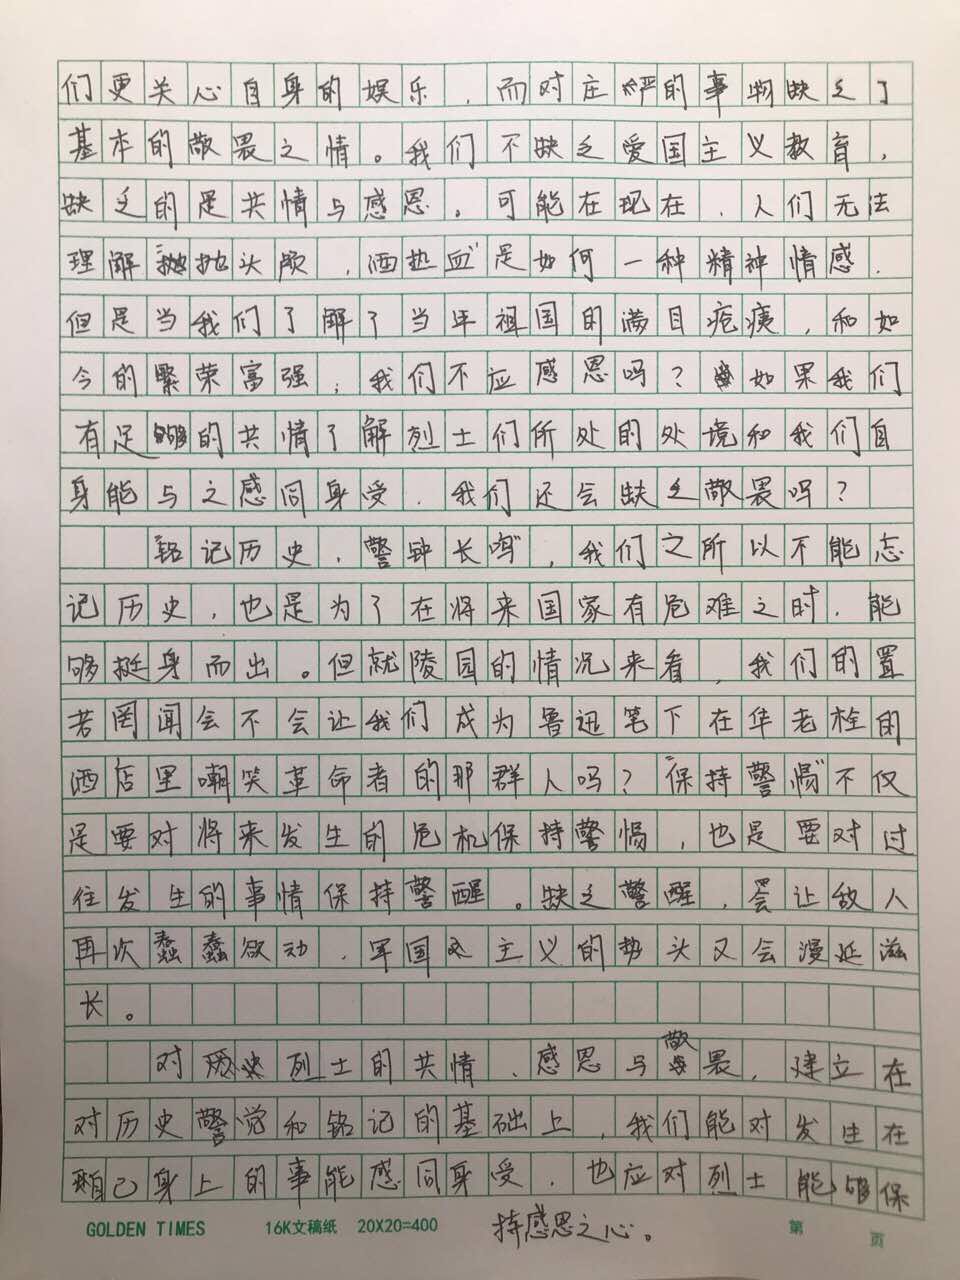 们更关心自身的娱乐，而对庄严的事物缺乏了
基本的敬畏之情。我们不缺乏爱国主义教育，
缺乏的是共情与感恩。可能在现在，人们无法
理解“抛头颅，洒热血”是如何一种精神情感，
但是当我们了解了当年祖国的满目疮痍，和如
今的繁荣富强，我们不应感恩吗？如果我们
有足够的共情了解烈士们所处的处境和我们自
身能与之感同身受，我们还会缺乏敬畏吗？
铭记历史，警钟长鸣”，我们之所以不能忘
记历史，也是为了在将来国家有危难之时，能
够挺身而出。但就陵园的情况来看，我们的置
若罔闻会不会让我们成为鲁迅笔下在华老栓的
酒店里嘲笑革命者的那群人吗？“保持警惕”不仅
是要对将来发生的危机保持警惕，也是要对过
往发生的事情保持警醒。缺乏警醒，会让敌人
再次蠢蠢欲动，军国主义的势头又会漫延滋
长。
对烈士的共情、感恩与敬畏，建立在
对历史警觉和铭记的基础上，我们能对发生在
自己身上的事能感同身受，也应对烈士能够保
持感恩之心。
GOLDEN TIMES 16K文稿纸 20X20=400 第 页